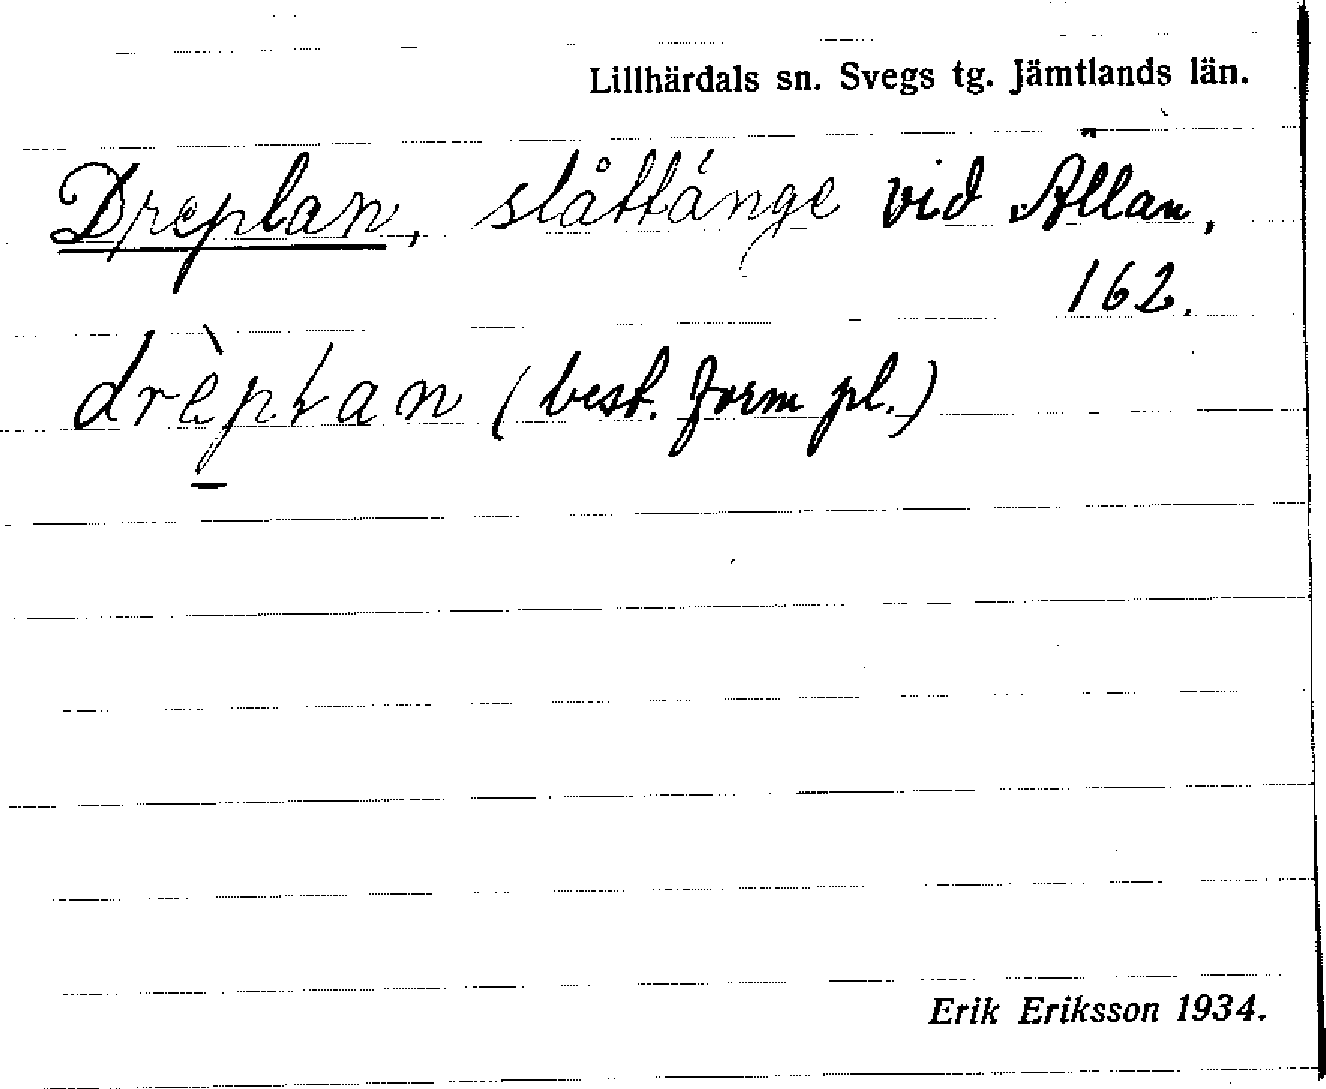 Lillhärdals sn. Svegs tg. Jämtlands län.
Dreplan, slåttänge vid Ällan,
162.
drèplan (best. form pl.)
Erik Eriksson 1934.